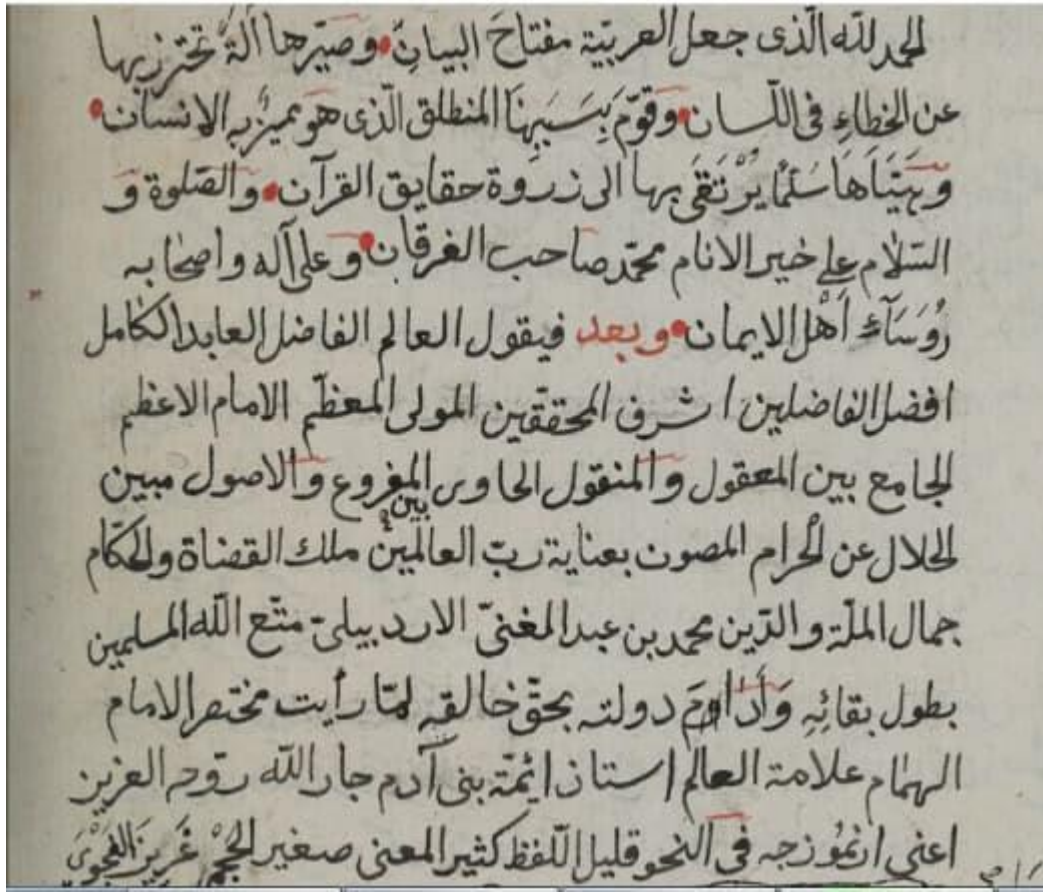 الحمد لله الّذى جعل العربيّة مفتاحَ البيانِ وصيّرها آلةً تحترز بها
عن الخطاءِ فى اللّسان وَقوّمَ بِسَبَبِهَا المنطلق الّذى هو مميزٌ به الانسان
وَهَيَّاَهَا سُلَّمًا يُرْتَقَى بها الى زروة حقايق القرآن والصّلوة وَ
السّلام على خير الانام محمّد صاحب الفرقان وعلى آله واصحابه
رُوَسَآءِ اَهْل الايمان وبعد فيقول العالم الفاضل العابد الكامل
افضل الفاضلين اشرف المحققين المولى المعظّم الامام الاعظم
الجامع بين المعقول والمنقول الحاوى بين الفروع والاصول مبين
الحلال عن الحرام المصون بعناية ربّ العالمين ملك القضاة والحكّام
جمال الملّة والدّين محمد بن عبد المغنىّ الاردبيلىّ متّع اللّه المسلمين
بطول بقائِهِ وَأَدَامَ دولته بحقّ خالقه لمّا رأيت مختصر الامام
الهمام علامة العالم استاذ ائمّة بنى آدم جار اللّه روّحه العزيز
اعنى انمُوزجه فى النحو قليل اللّفظ كثير المعنى صغير الحَجْمِ غَرِيزَ الفَحْوَى